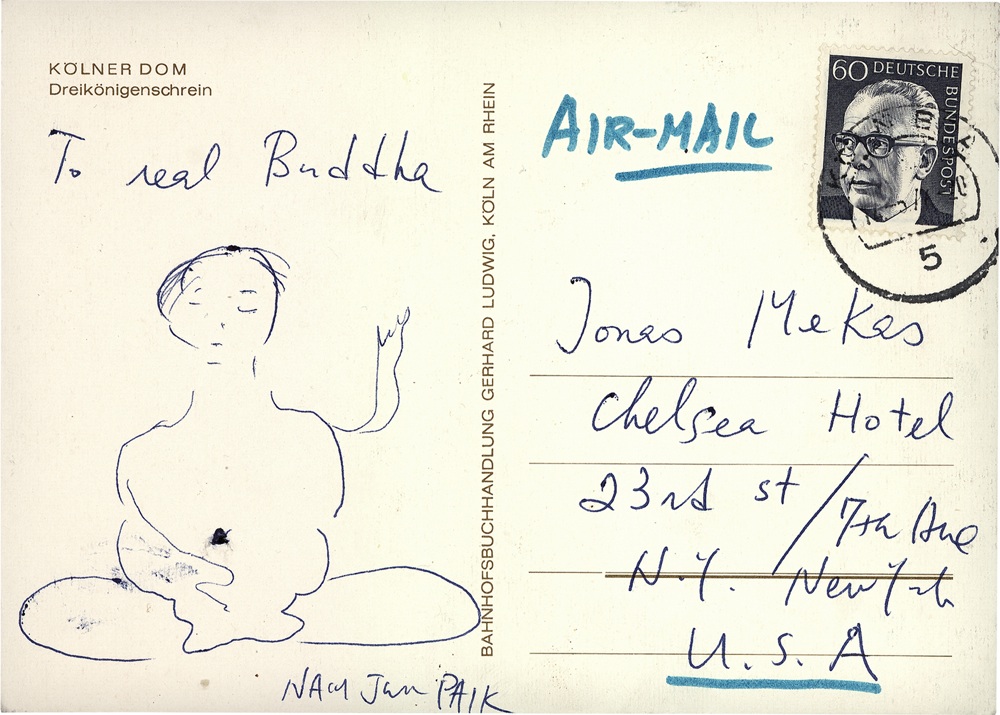 KÖLNER DOM
Dreikönigenschrein
To real Buddha
NAM Jun PAIK
BAHNHOFSBUCHHANDLUNG GERHARD LUDWIG, KÖLN AM RHEIN
AIR-MAIL
60 DEUTSCHE
BUNDESPOST
5
Jonas MeKas
Chelsea Hotel
23rd st / 7th Ave
N.Y. New York
U.S.A